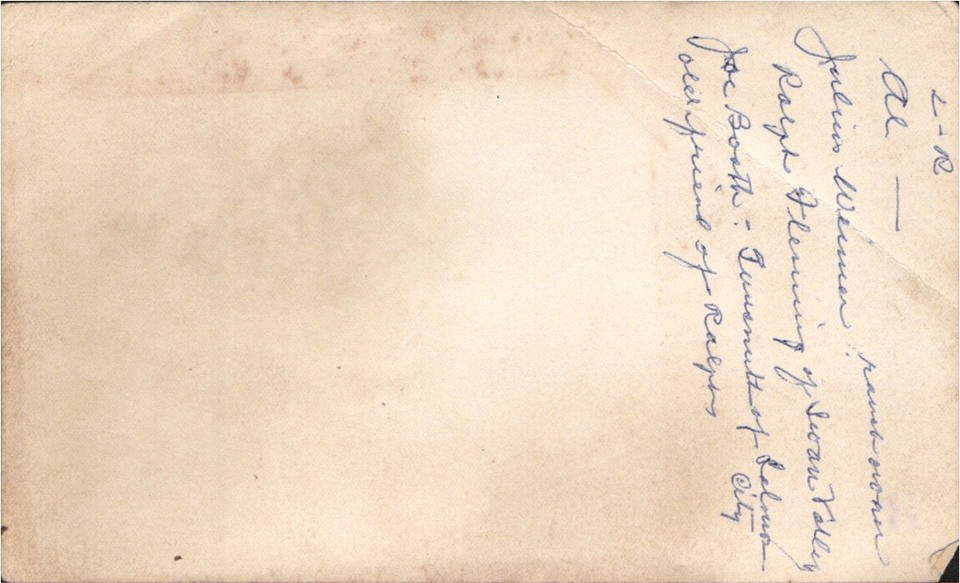 L-R
Al —
Julius Weimer: ranch owner
Ralph Fleming of Swan Valley
Joe Booth - of Salmon
City
old friend of Ralphs